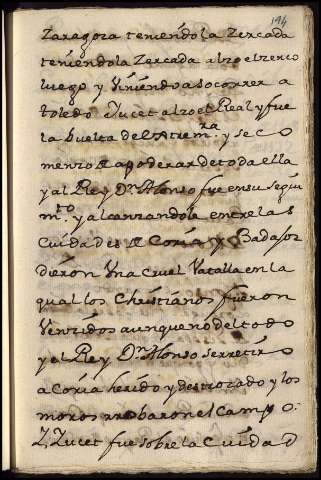 194
Zaragoza teniendola Zercada
teniendola Zercada alzo el zerco
luego y Viniendo a socorrer a
toledo Jucet alzo el Real y fue
la buelta de Extrem.ra y se c
menzo a apoderar de toda ella
y al Rey Dn. Alonso fue en su segui
m.to y alcanzandole entre las
Ciudades de Coria y Badajoz
dieron Una Cruel Vatalla en la
qual los Christianos fueron
Venzidos aunque no del todo
y el Rey Dn. Alonso se rretiro
a Coria herido y destrozado y los
moros rrobaron el Campo.
Y Zucet fue sobre la Cuidad